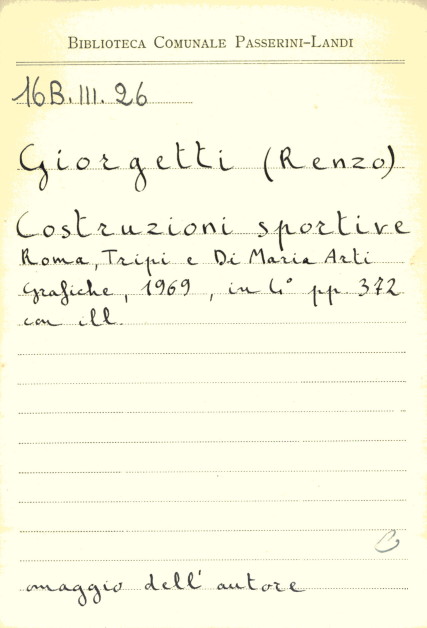 BIBLIOTECA COMUNALE PASSERINI-LANDI
16B.III.26
Giorgetti (Renzo)
Costruzioni sportive
Roma, Tripi e Di Maria Arti
Grafiche, 1969, in 4° pp 372
con ill.
omaggio dell'autore